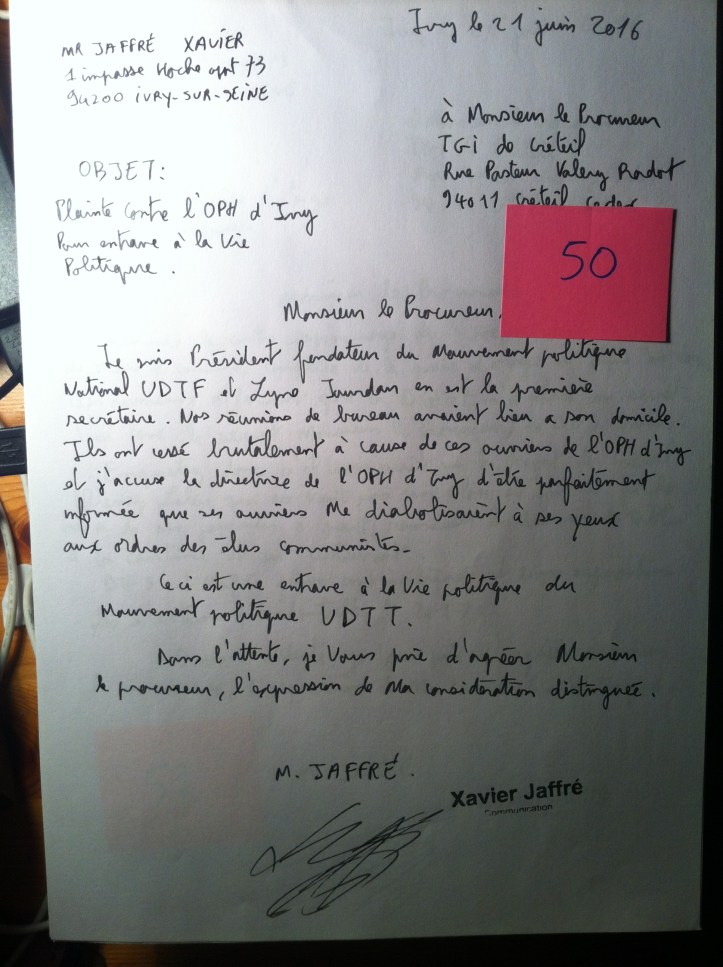 Ivry le 21 juin 2016
MR JAFFRÉ XAVIER
1 impasse Hoche apt 73
94200 IVRY-SUR-SEINE
à Monsieur le Procureur
TGI de Créteil
Rue Pasteur Valery Radot
94011 Créteil cedex
OBJET:
Plainte contre l'OPH d'Ivry
Pour entrave à la Vie
Politique.
50
Monsieur le Procureur,
Je suis Président fondateur du Mouvement politique
National UDTF et Jourdan en est la première
secrétaire. Nos réunions de bureau avaient lieu a son domicile.
Ils ont cessé brutalement à cause de ces ouvriers de l'OPH d'Ivry
et j'accuse la directrice de l'OPH d'Ivry d'être parfaitement
informée que ses ouvriers me diabolisaient à ses yeux
aux ordres des élus communistes.
Ceci est une entrave à la Vie politique du
Mouvement politique UDTT.
Dans l'attente, je Vous prie d'agréer Monsieur
le procureur, l'expression de Ma considération distinguée.
M. JAFFRÉ.
Xavier Jaffré
Communication